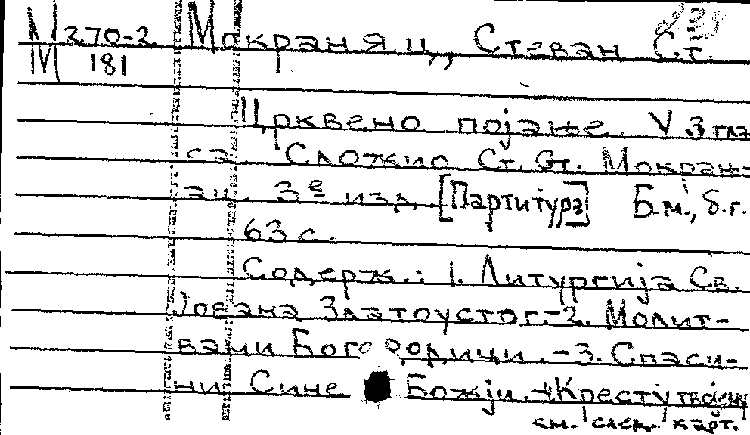 М 270-2 Мокрањац, Стеван Ст.
М 181
Црквено појање. V 3 гла
са. Сложио Ст. Ст. Мокрањ-
ац. 3е изд. [Партитура] Б.м., б.г.
63 с.
Содерж.: 1. Литургија Св.
Јована Златоустог.-2. Молит-
вами Богородици.-3. Спаси-
ни Сине Божји.-4. Кресту твојему
см. след. карт.